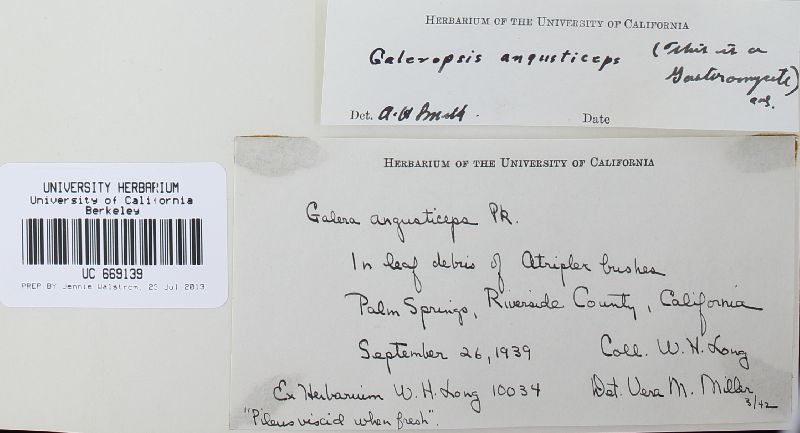 HERBARIUM OF THE UNIVERSITY OF CALIFORNIA
Galeropsis angusticeps (This is a
Gasteromycete)
Det. A.H Smith. Date
UNIVERSITY HERBARIUM
University of California
Berkeley
UC 669139
PREP BY Jennie Walstrom, 23 Jul 2013
HERBARIUM OF THE UNIVERSITY OF CALIFORNIA
Galera angusticeps Pk.
In leaf debris of Atriplex bushes
Palm Springs, Riverside County, California
September 26, 1939 Coll. W. H. Long
Ex Herbarium W. H. Long 10034 Det. Vera M. Miller
3/42
"Pileus viscid when fresh".